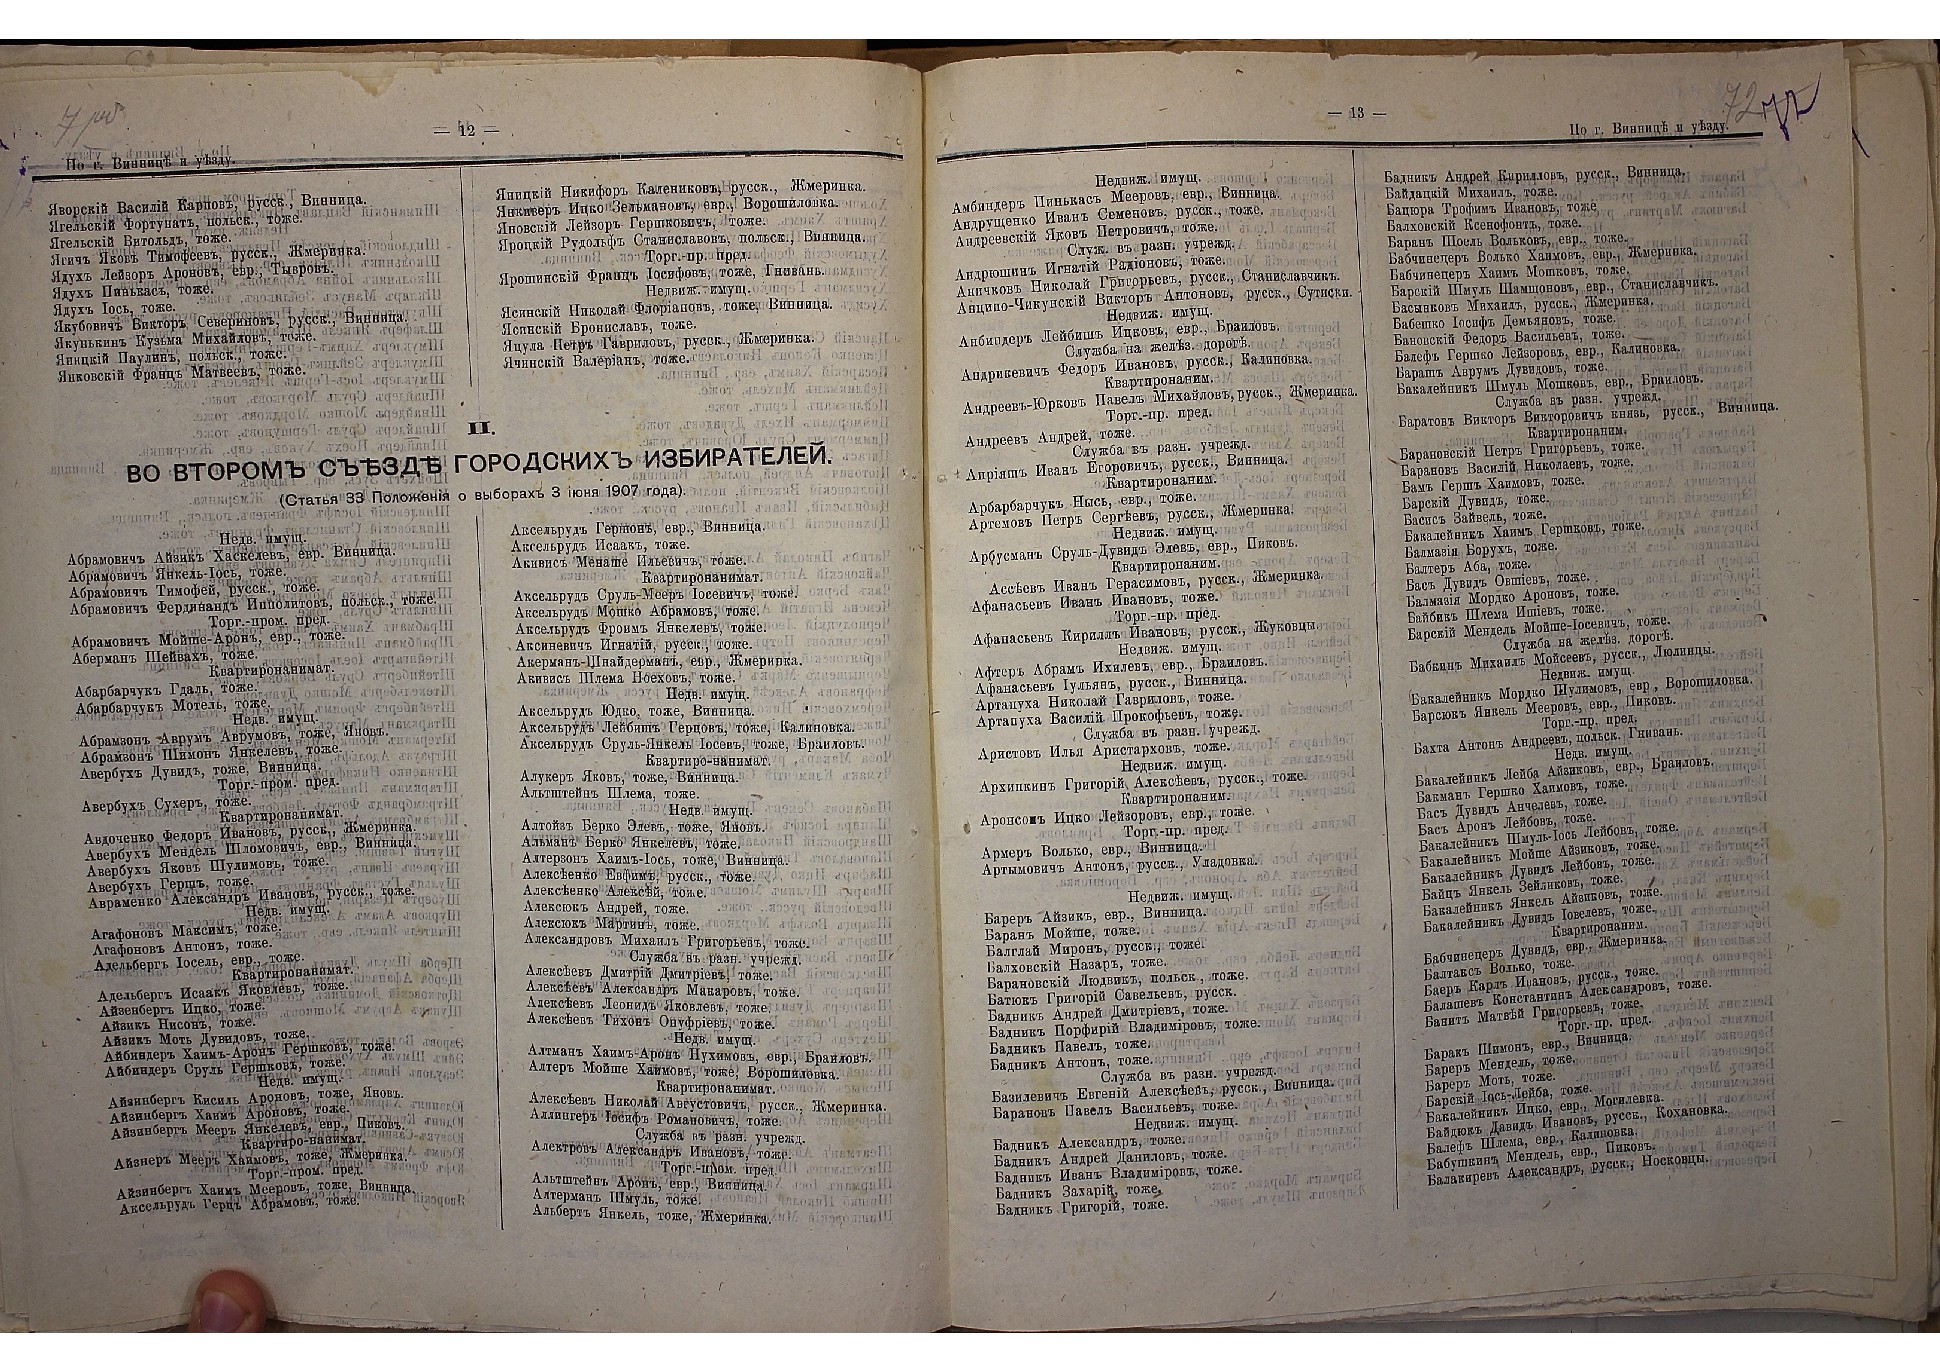 — 12 —
По г. Винницѣ и уѣзду.
Яворскій Василій Карповъ, русск., Винница.
Ягельскій Фортунатъ, польск., тоже.
Ягельскій Витольдъ, тоже.
Ягичъ Яковъ Тимофеевъ, русск., Жмеринка.
Ядухъ Лейзоръ Ароновъ, евр., Тывровъ.
Ядухъ Пинькасъ, тоже.
Ядухъ Іось, тоже.
Якубовичъ Викторъ Севериновъ, русск., Винница.
Якунькинъ Кузьма Михайловъ, тоже.
Яницкій Паулинъ, польск., тоже.
Янковскій Францъ Матвеевъ, тоже.
Яницкій Никифоръ Калениковъ, русск., Жмеринка.
Янкиверъ Ицко Зельмановъ, евр., Ворошиловка.
Яновскій Лейзоръ Гершковичъ, тоже.
Яроцкій Рудольфъ Станиславовъ, польск., Винница.
Торг.-пр. пред.
Ярошинскій Францъ Іосифовъ, тоже, Гнивань.
Недвиж. имущ.
Ясинскій Николай Флоріановъ, тоже, Винница.
Ясинскій Брониславъ, тоже.
Яцула Петръ Гавриловъ, русск., Жмеринка.
Ячинскій Валеріанъ, тоже.
II.
ВО ВТОРОМЪ СЪѢЗДѢ ГОРОДСКИХЪ ИЗБИРАТЕЛЕЙ.
(Статья 33 Положенія о выборахъ 3 іюня 1907 года).
Недв. имущ.
Абрамовичъ Айзикъ Хаскелевъ, евр. Винница.
Абрамовичъ Янкель-Іось, тоже.
Абрамовичъ Тимофей, русск., тоже.
Абрамовичъ Фердинандъ Ипполитовъ, польск., тоже
Торг.-пром. пред.
Абрамовичъ Мойше-Аронъ, евр., тоже.
Аберманъ Шейвахъ, тоже.
Квартиронанимат.
Абарбарчукъ Гдаль, тоже.
Абарбарчукъ Мотель, тоже.
Недв. имущ.
Абрамзонъ Аврумъ Аврумовъ, тоже, Яновъ.
Абрамзонъ Шимонъ Янкелевъ, тоже.
Авербухъ Дувидъ, тоже, Винница.
Торг.-пром. пред.
Авербухъ Сухеръ, тоже.
Квартиронанимат.
Авдоченко Федоръ Ивановъ, русск., Жмеринка.
Авербухъ Мендель Шломовичъ, евр., Винница.
Авербухъ Яковъ Шулимовъ, тоже.
Авербухъ Гершъ, тоже.
Авраменко Александръ Ивановъ, русск., тоже.
Недв. имущ.
Агафоновъ Максимъ, тоже.
Агафоновъ Антонъ, тоже.
Адельбергъ Іосель, евр., тоже.
Квартиронанимат.
Адельбергъ Исаакъ Яковлевъ, тоже.
Айзенбергъ Ицко, тоже.
Айзикъ Нисонъ, тоже.
Айзикъ Моть Дувидовъ, тоже.
Айбиндеръ Хаимъ-Аронъ Гершковъ, тоже.
Айбиндеръ Сруль Гершковъ, тоже.
Недв. имущ.
Айзинбергъ Кисиль Ароновъ, тоже, Яновъ.
Айзинбергъ Хаимъ Ароновъ, тоже.
Айзинбергъ Мееръ Янкелевъ, евр., Пиковъ.
Квартиро-нанимат.
Айзнеръ Мееръ Хаимовъ, тоже, Жмеринка.
Торг.-пром. пред.
Айзинбергъ Хаимъ Мееровъ, тоже, Винница.
Аксельрудъ Герцъ Абрамовъ, тоже.
Аксельрудъ Гершонъ, евр., Винница.
Аксельрудъ Исаакъ, тоже.
Акивисъ Менаше Ильевичъ, тоже.
Квартиронанимат.
Аксельрудъ Сруль-Мееръ Іосевичъ, тоже.
Аксельрудъ Мошко Абрамовъ, тоже.
Аксельрудъ Фроимъ Янкелевъ, тоже.
Аксиневичъ Игнатій, русск., тоже.
Акерманъ-Шнайдерманъ, евр., Жмеринка.
Акивисъ Шлема Ноеховъ, тоже.
Недв. имущ.
Аксельрудъ Юдко, тоже, Винница.
Аксельрудъ Лейбишъ Герцовъ, тоже, Калиновка.
Аксельрудъ Сруль-Янкель Іосевъ, тоже, Браиловъ.
Квартиро-нанимат.
Алукеръ Яковъ, тоже, Винница.
Альтштейнъ Шлема, тоже.
Недв. имущ.
Алтойзъ Берко Элевъ, тоже, Яновъ.
Альманъ Берко Янкелевъ, тоже.
Алтерзонъ Хаимъ-Іось, тоже, Винница.
Алексѣенко Евфимъ, русск., тоже.
Алексѣенко Алексѣй, тоже.
Алексюкъ Андрей, тоже.
Алексюкъ Мартинъ, тоже.
Александровъ Михаилъ Григорьевъ, тоже.
Служба въ разн. учрежд.
Алексѣевъ Дмитрій Дмитріевъ, тоже.
Алексѣевъ Александръ Макаровъ, тоже.
Алексѣевъ Леонидъ Яковлевъ, тоже.
Алексѣевъ Тихонъ Онуфріевъ, тоже.
Недв. имущ.
Алтманъ Хаимъ-Аронъ Нухимовъ, евр., Браиловъ.
Алтеръ Мойше Хаимовъ, тоже, Ворошиловка.
Квартиронанимат.
Алексѣевъ Николай Августовичъ, русск., Жмеринка.
Аллингеръ Іосифъ Романовичъ, тоже.
Служба въ разн. учрежд.
Алектровъ Александръ Ивановъ, тоже.
Торг.-пром. пред.
Альтштейнъ Аронъ, евр., Винница.
Алтерманъ Шмуль, тоже.
Альбертъ Янкель, тоже, Жмеринка.
— 13 —
72
По г. Винницѣ и уѣзду.
Недвиж. имущ.
Амбиндеръ Пинькасъ Мееровъ, евр., Винница.
Андрущенко Иванъ Семеновъ, русск., тоже.
Андреевскій Яковъ Петровичъ, тоже.
Служ. въ разн. учрежд.
Андрюшинъ Игнатій Радіоновъ, тоже.
Аничковъ Николай Григорьевъ, русск., Станиславчикъ.
Анципо-Чикунскій Викторъ Антоновъ, русск., Сутиски.
Недвиж. имущ.
Анбиндеръ Лейбишъ Ицковъ, евр., Браиловъ.
Служба на желѣз. дорогѣ.
Андрикевичъ Федоръ Ивановъ, русск., Калиновка.
Квартиронаним.
Андреевъ-Юрковъ Павелъ Михайловъ, русск., Жмеринка.
Торг.-пр. пред.
Андреевъ Андрей, тоже.
Служба въ разн. учрежд.
Апріятъ Иванъ Егоровичъ, русск., Винница.
Квартиронаним.
Арбарбарчукъ Нысь, евр., тоже.
Артемовъ Петръ Сергѣевъ, русск., Жмеринка.
Недвиж. имущ.
Арбусманъ Сруль-Дувидъ Элевъ, евр., Пиковъ.
Квартиронаним.
Ассѣевъ Иванъ Герасимовъ, русск., Жмеринка.
Афанасьевъ Иванъ Ивановъ, тоже.
Торг.-пр. пред.
Афанасьевъ Кириллъ Ивановъ, русск., Жуковцы.
Недвиж. имущ.
Афтеръ Абрамъ Ихилевъ, евр., Браиловъ.
Афанасьевъ Іульянъ, русск., Винница.
Артапуха Николай Гавриловъ, тоже.
Артапуха Василій Прокофьевъ, тоже.
Служба въ разн. учрежд.
Аристовъ Илья Аристарховъ, тоже.
Недвиж. имущ.
Архипкинъ Григорій Алексѣевъ, русск., тоже.
Квартиронаним.
Аронсонъ Ицко Лейзоровъ, евр., тоже.
Торг.-пр. пред.
Армеръ Волько, евр., Винница.
Артымовичъ Антонъ, русск., Уладовка.
Недвиж. имущ.
Бареръ Айзикъ, евр., Винница.
Баранъ Мойше, тоже.
Балглай Миронъ, русск., тоже.
Балховскій Назаръ, тоже.
Барановскій Людвикъ, польск., тоже.
Батюкъ Григорій Савельевъ, русск.
Бадникъ Андрей Дмитріевъ, тоже.
Бадникъ Порфирій Владиміровъ, тоже.
Бадникъ Павелъ, тоже.
Бадникъ Антонъ, тоже.
Служба въ разн. учрежд.
Базилевичъ Евгеній Алексѣевъ, русск., Винница.
Барановъ Павелъ Васильевъ, тоже.
Недвиж. имущ.
Бадникъ Александръ, тоже.
Бадникъ Андрей Даниловъ, тоже.
Бадникъ Иванъ Владиміровъ, тоже.
Бадникъ Захарій, тоже.
Бадникъ Григорій, тоже.
Бадникъ Андрей Кирилловъ, русск., Винница.
Байдацкій Михаилъ, тоже.
Бацюра Трофимъ Ивановъ, тоже
Балховскій Ксенофонтъ, тоже.
Баранъ Шоель Вольковъ, евр., тоже.
Бабчинецеръ Волько Хаимовъ, евр., Жмеринка.
Бабчинецеръ Хаимъ Мошковъ, тоже.
Барскій Шмуль Шамшоновъ, евр., Станиславчикъ.
Басынковъ Михаилъ, русск., Жмеринка.
Бабешко Іосифъ Демьяновъ, тоже.
Бановскій Федоръ Васильевъ, тоже.
Балефъ Гершко Лейзоровъ, евр., Калиновка.
Барашъ Аврумъ Дувидовъ, тоже.
Бакалейникъ Шмуль Мошковъ, евр., Браиловъ.
Служба въ разн. учрежд.
Баратовъ Викторъ Викторовичъ князь, русск., Винница.
Квартиронаним.
Барановскій Петръ Григорьевъ, тоже.
Барановъ Василій Николаевъ, тоже.
Бамъ Гершъ Хаимовъ, тоже.
Барскій Дувидъ, тоже.
Басисъ Зайвель, тоже.
Бакалейникъ Хаимъ Гершковъ, тоже.
Балмазія Борухъ, тоже.
Балтеръ Аба, тоже.
Басъ Дувидъ Овшіевъ, тоже.
Балмазія Мордко Ароновъ, тоже.
Байбикъ Шлема Ишіевъ, тоже.
Барскій Мендель Мойше-Іосевичъ, тоже.
Служба на желѣз. дорогѣ.
Бабкинъ Михаилъ Мойсеевъ, русск., Люлинцы.
Недвиж. имущ.
Бакалейникъ Мордко Шулимовъ, евр., Ворошиловка.
Барсюкъ Янкель Мееровъ, евр., Пиковъ.
Торг.-пр. пред.
Бахта Антонъ Андреевъ, польск. Гнивань.
Недв. имущ.
Бакалейникъ Лейба Айзиковъ, евр., Браиловъ.
Бакманъ Гершко Хаимовъ, тоже.
Басъ Дувидъ Анчелевъ, тоже.
Басъ Аронъ Лейбовъ, тоже.
Бакалейникъ Шмуль-Іось Лейбовъ, тоже.
Бакалейникъ Мойше Айзиковъ, тоже.
Бакалейникъ Дувидъ Лейбовъ, тоже.
Байцъ Янкель Зейликовъ, тоже.
Бакалейникъ Янкель Айзиковъ, тоже.
Бакалейникъ Дувидъ Іовелевъ, тоже.
Квартиронаним.
Бабчинецеръ Дувидъ, евр., Жмеринка.
Балтаксъ Волько, тоже.
Баеръ Карлъ Ивановъ, русск., тоже.
Балашевъ Константинъ Александровъ, тоже.
Банитъ Матвѣй Григорьевъ, тоже.
Торг.-пр. пред.
Баракъ Шимонъ, евр., Винница.
Бареръ Мендель, тоже.
Бареръ Моть, тоже.
Барскій Іось-Лейба, тоже.
Бакалейникъ Ицко, евр., Могилевка.
Байдюкъ Давидъ Ивановъ, русск., Кохановка.
Балефъ Шлема, евр., Калиновка.
Бабушкинъ Мендель, евр., Пиковъ.
Балакиревъ Александръ, русск., Носковцы.